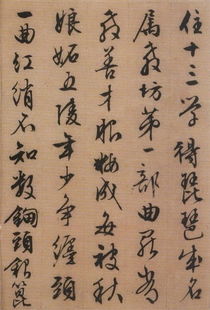 住十三学得琵琶成名
属教坊第一部曲罷
教善才服粧成每被秋
娘妬五陵年少争纏頭
一曲紅綃不知数鈿頭銀篦